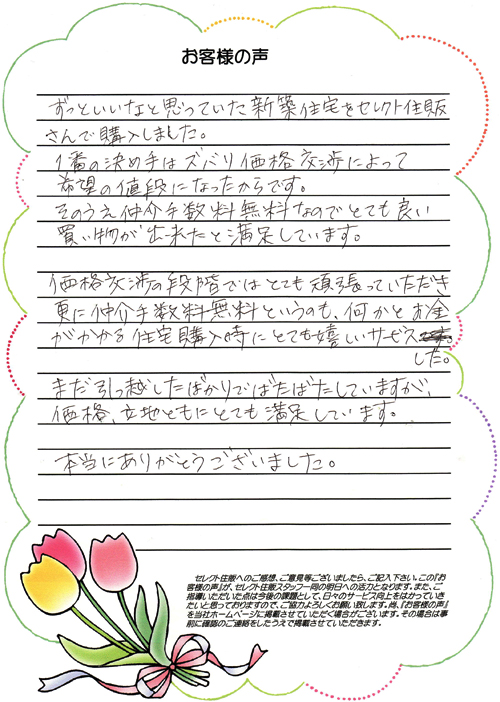 お客様の声
ずっといいなと思っていた新築住宅をセレクト住販
さんで購入しました。
1番の決め手はズバリ価格交渉によって
希望の値段になったからです。
そのうえ仲介手数料無料なのでとても良い
買い物が出来たと満足しています。
価格交渉の段階ではとても頑張っていただき
更に仲介手数料無料というのも、何かとお金
がかかる住宅購入時にとても嬉しいサービス
でした。
まだ引っ越ししたばかりでばたばたしていますが、
価格、立地ともにとても満足しています。
本当にありがとうございました。
セレクト住販へのご感想、ご意見等ございましたら、ご記入下さい。この『お
客様の声』が、セレクト住販スタッフ一同の明日への活力となります。また、ご
指導いただいた点は今後の課題として、日々のサービス向上をはかっていき
たいと思っておりますので、ご協力よろしくお願い致します。尚、『お客様の声』
を当社ホームページに掲載させていただく場合がございます。その場合は事
前に確認のご連絡をしたうえで掲載させていただきます。